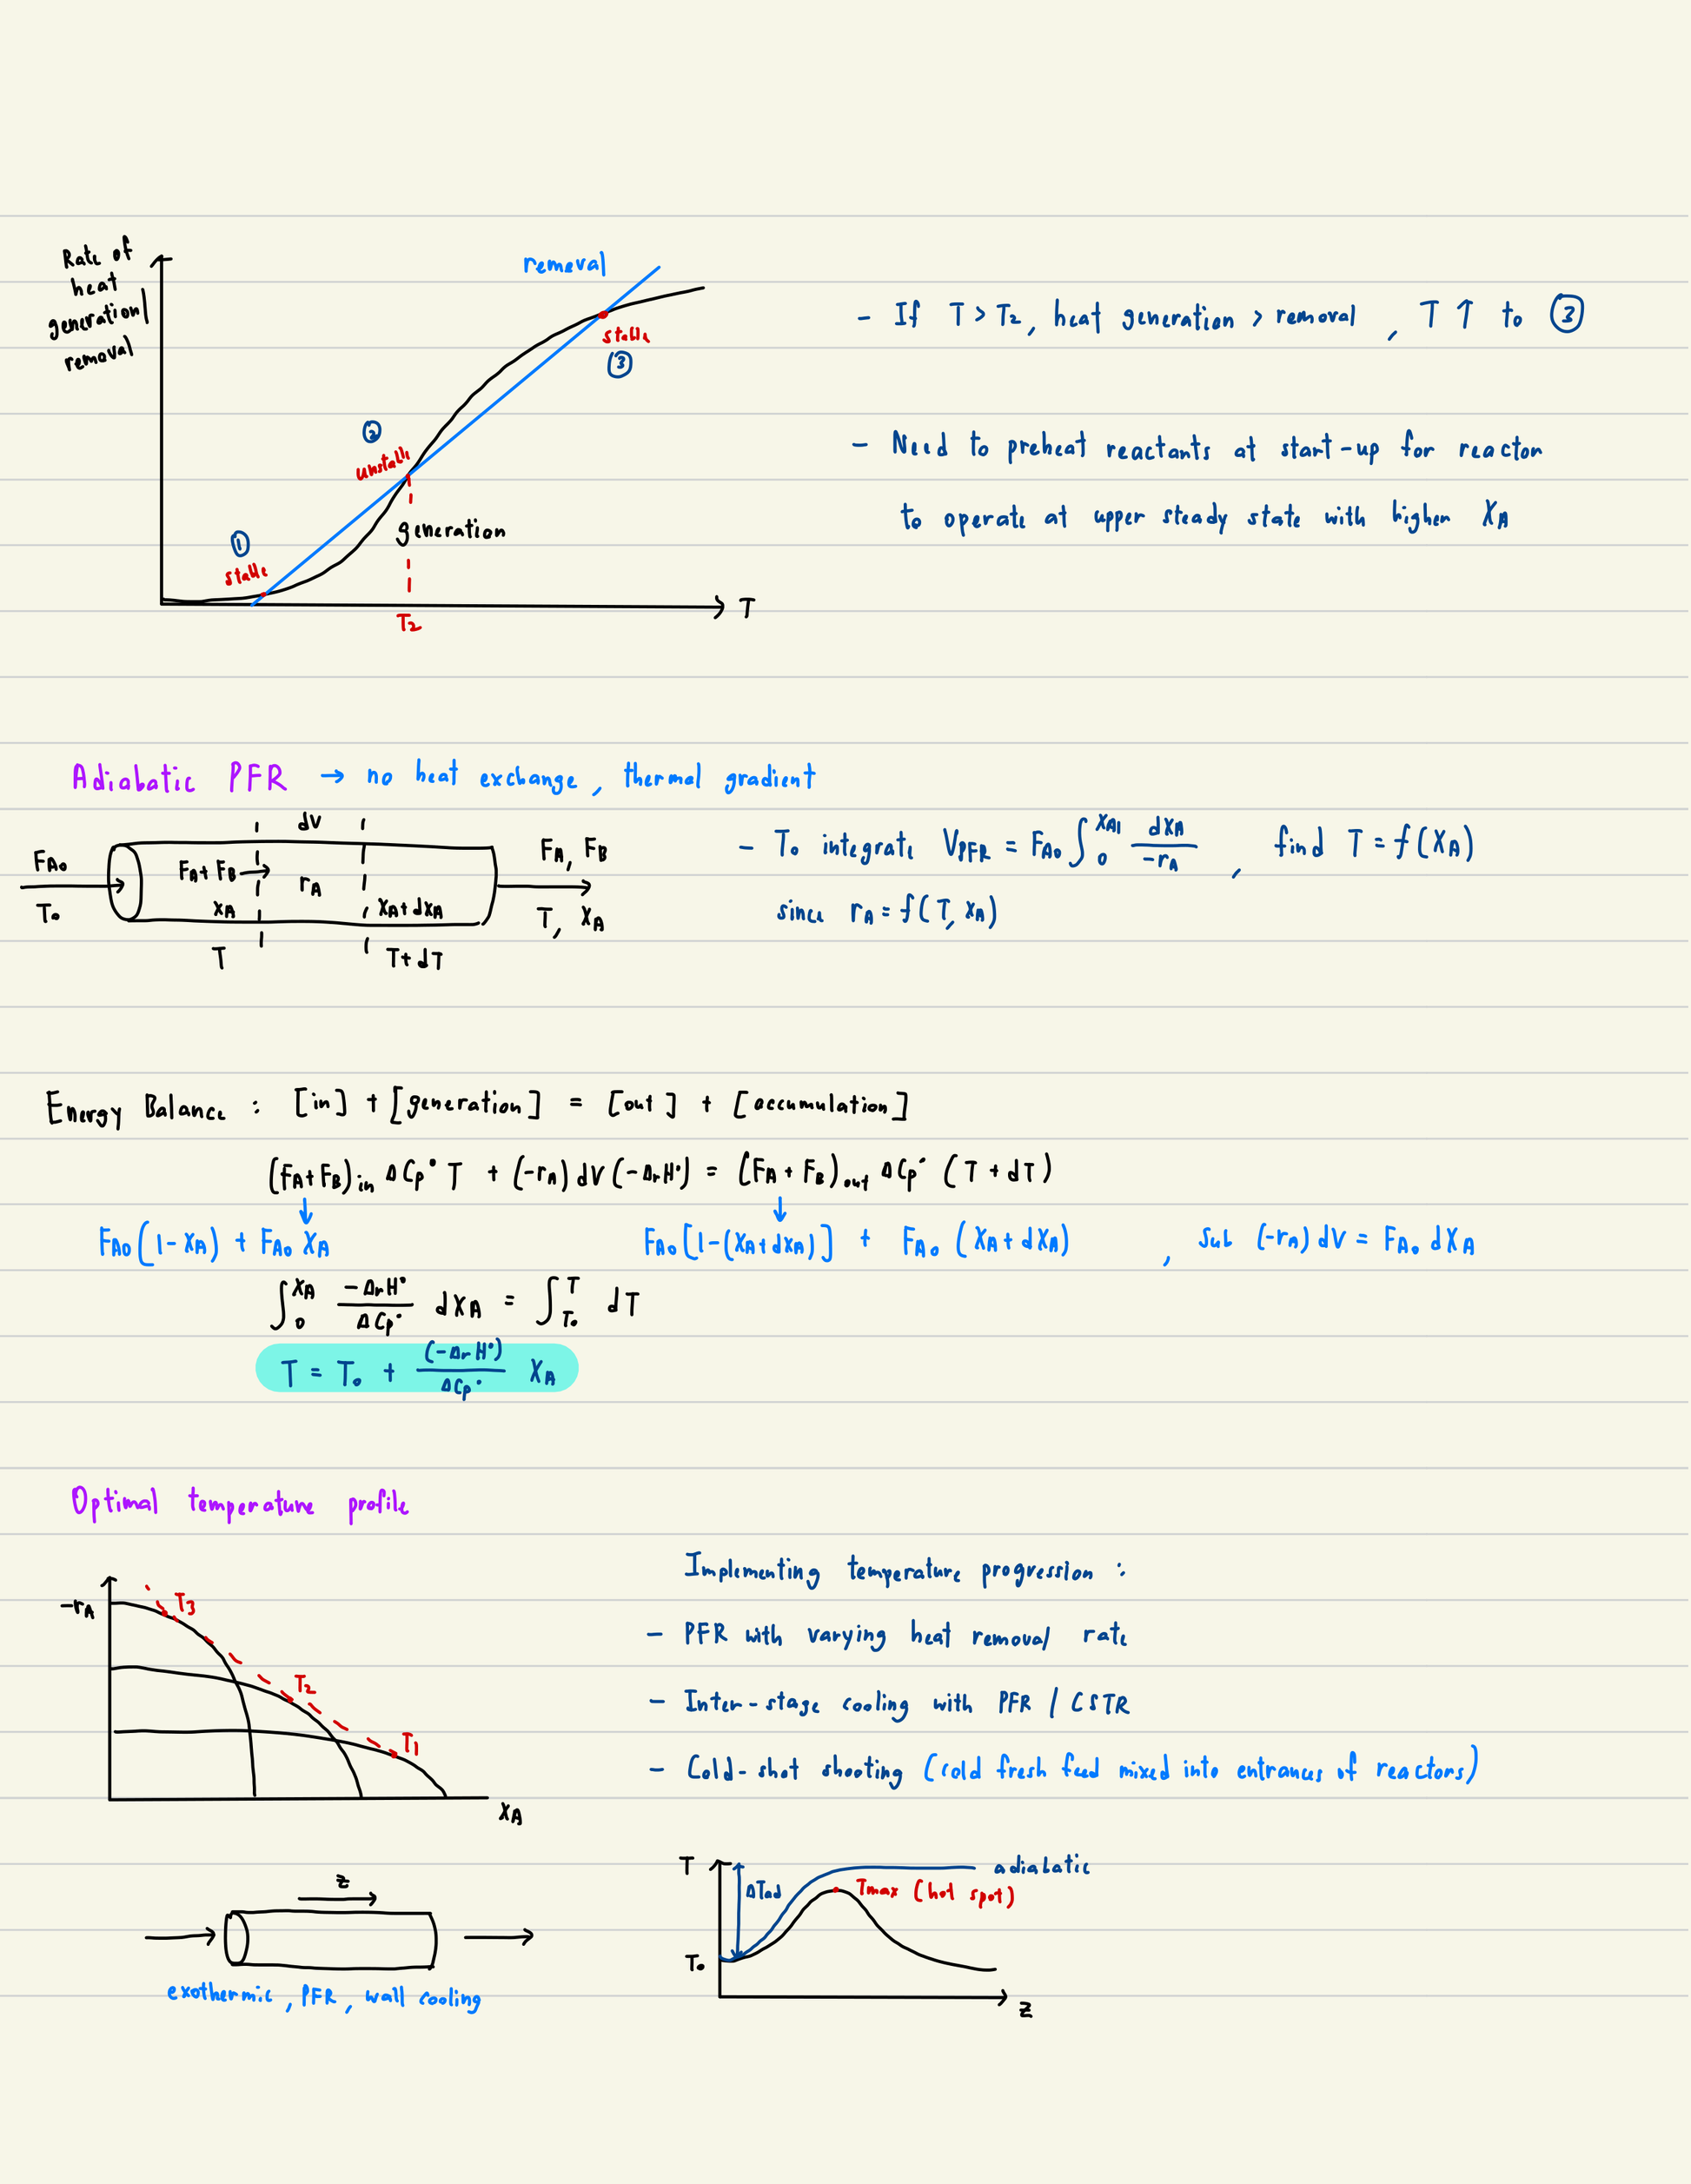 Rate of
heat
generation/
removal
removal
stable
③
②
unstable
generation
①
stable
T₂
T
- If T > T₂, heat generation > removal, T ↑ to ③
- Need to preheat reactants at start-up for reactor
to operate at upper steady state with higher X_A
Adiabatic PFR → no heat exchange, thermal gradient
dV
F_A0
T₀
F_A + F_B →
r_A
X_A
X_A + dX_A
T
T + dT
F_A, F_B
T, X_A
- To integrate V_PFR = F_A0 ∫₀^X_A1 dX_A / -r_A, find T = f(X_A)
since r_A = f(T, X_A)
Energy Balance : [in] + [generation] = [out] + [accumulation]
(F_A + F_B)_in ΔCp° T + (-r_A) dV (-Δ_rH°) = (F_A + F_B)_out ΔCp° (T + dT)
↓ ↓
F_A0 (1 - X_A) + F_A0 X_A F_A0 [1 - (X_A + dX_A)] + F_A0 (X_A + dX_A), sub (-r_A) dV = F_A0 dX_A
∫₀^X_A -Δ_rH° / ΔCp° dX_A = ∫_T₀^T dT
T = T₀ + (-Δ_rH°) / ΔCp° X_A
Optimal temperature profile
-r_A
T₃
T₂
T₁
X_A
Implementing temperature progression :
- PFR with varying heat removal rate
- Inter-stage cooling with PFR / CSTR
- Cold-shot shooting (cold fresh feed mixed into entrances of reactors)
z
exothermic, PFR, wall cooling
T
ΔTad
adiabatic
Tmax (hot spot)
T₀
z